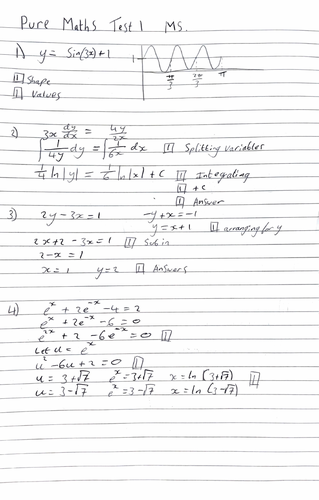 Pure Maths Test 1 MS.
1) y = Sin(3x)+1
1
π/3 2π/3 π
[1] Shape
[1] Values
2) 3x dy/dx = 4y/2x
∫ 1/4y dy = ∫ 1/6x dx [1] Splitting variables
1/4 ln|y| = 1/6 ln|x| + c [1] Integrating
[1] +c
[1] Answer
3) 2y-3x=1 -y+x=-1
y=x+1 [1] arranging for y
2x+2-3x=1 [1] Sub in
2-x=1
x=1 y=2 [1] Answers
4) e^x + 2e^-x - 4 = 2
e^x + 2e^-x - 6 = 0
e^2x + 2 - 6e^-x = 0 [1]
Let u = e^x
u^2 - 6u + 2 = 0 [1]
u = 3+√7 e^x = 3+√7 x = ln(3+√7) [1]
u = 3-√7 e^x = 3-√7 x = ln(3-√7)